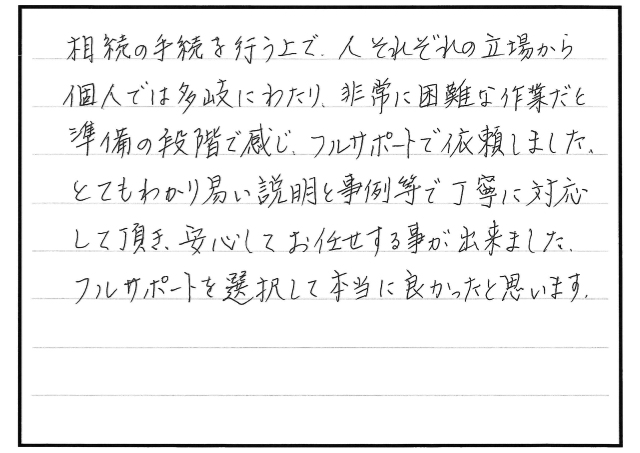 相続の手続を行う上で、人それぞれの立場から
個人では多岐にわたり、非常に困難な作業だと
準備の段階で感じ、フルサポートで依頼しました。
とてもわかり易い説明と事例等で丁寧に対応
して頂き、安心してお任せする事が出来ました。
フルサポートを選択して本当に良かったと思います。